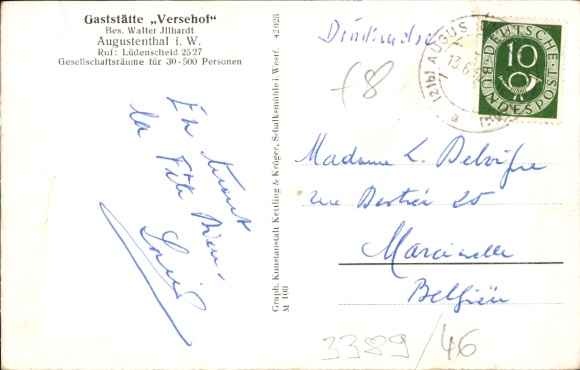 Gaststätte „Versehof"
Bes. Walter Jllhardt
Augustenthal i. W.
Ruf: Lüdenscheid 2527
Gesellschaftsräume für 30-500 Personen
En
la Fête Dieu-
Graph. Kunstanstalt Kettling & Krüger, Schalksmühle i. Westf. 42 028
M 100
Drucksache
f8
(21b) AUGUS
13.6
a
DEUTSCHE
BUNDESPOST
10
Madame L.
rue 25
Marcinelle
Belgien
3389/46